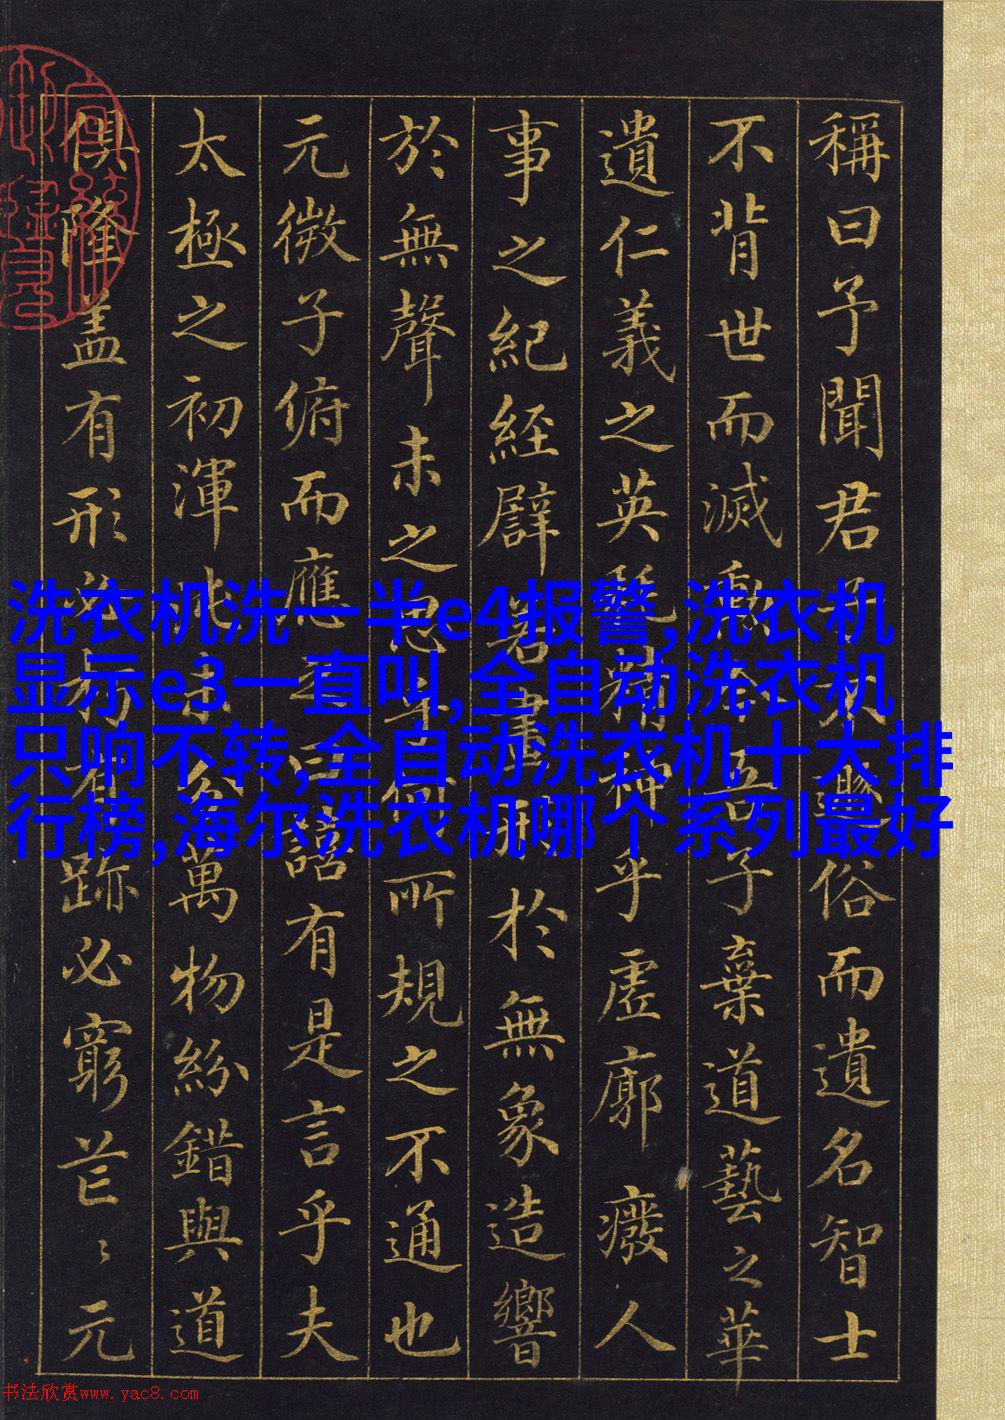 稱曰予聞君子不遯俗而遺名智士
不背世而滅勳今吾子棄道藝之華
遺仁義之英耗精神乎虛廓廢人
事之紀經譬若畫形於無象造響
於無聲未之思乎何所規之不通也
元微子俯而應之曰譆有是言乎夫
太極之初渾沌未分萬物紛錯與道
俱隆盖有形必朽有跡必窮芒〻元
洗衣机洗一半e4报警,洗衣机
显示e3一直叫,全自动洗衣机
只响不转,全自动洗衣机十大排
行榜,海尔洗衣机哪个系列最好
书法欣赏www.yac8.com